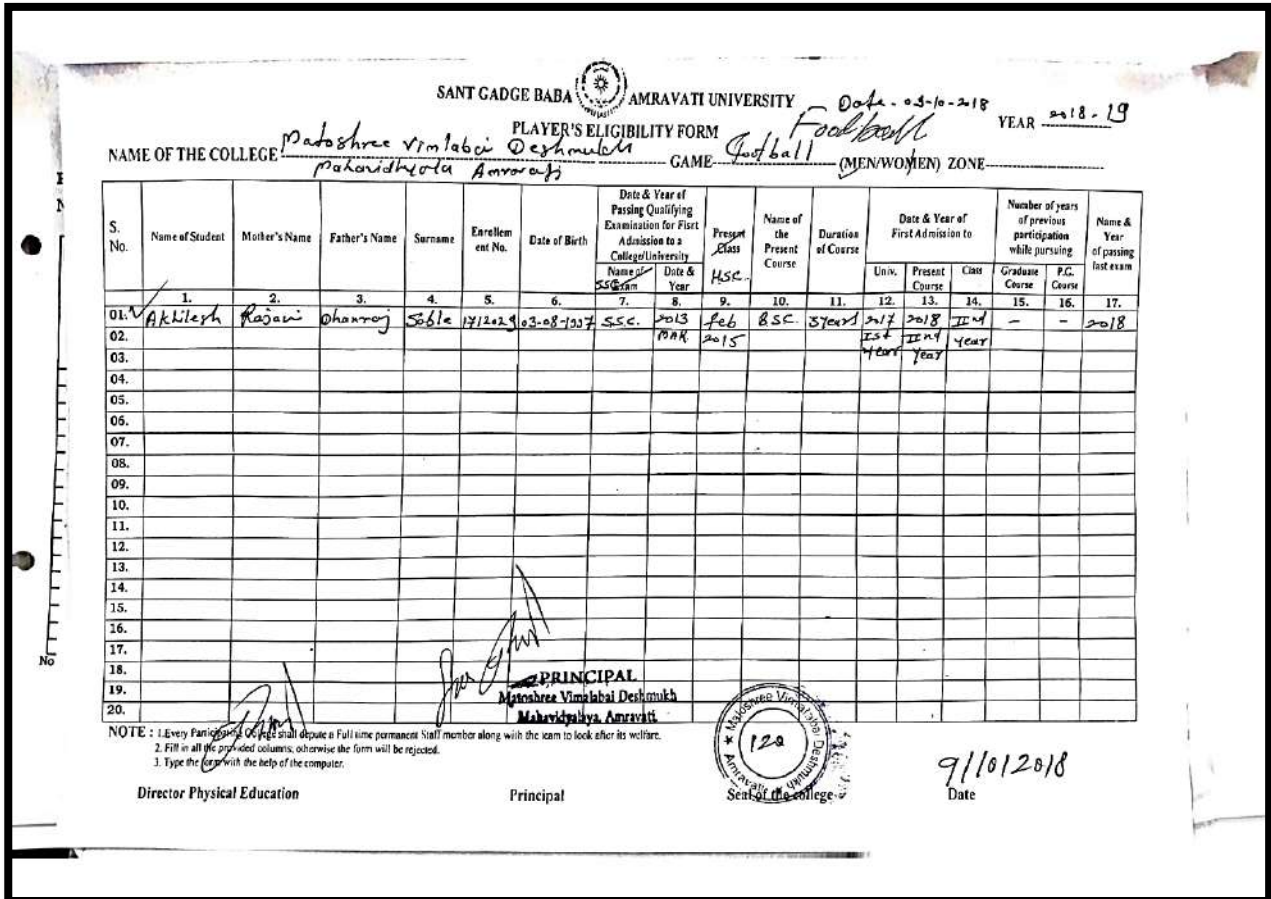 SANT GADGE BABA AMRAVATI UNIVERSITY Date - 09-10-2018
PLAYER'S ELIGIBILITY FORM Football YEAR 2018-19
NAME OF THE COLLEGE Matoshree Vimlabai Deshmukh GAME Football (MEN/WOMEN) ZONE
Amravati
S. No. Name of Student Mother's Name Father's Name Surname Enrollem ent No. Date of Birth Date & Year of Passing Qualifying Examination for Fisrt Admission to a College/University Present Class HSC. Name of the Present Course Duration of Course Date & Year of First Admission to Number of years of previous participation while pursuing Name & Year of passing last exam
Name of SSC Exam Date & Year Univ. Present Course Class Graduate Course P.G. Course
1. 2. 3. 4. 5. 6. 7. 8. 9. 10. 11. 12. 13. 14. 15. 16. 17.
01. Akhilesh Dhanraj Sable 03-08-1997 S.S.C. 2013 feb B.SC. 3years 2017 2018 IInd - - 2018
02. MAR 2015 Ist year IInd year year
03.
04.
05.
06.
07.
08.
09.
10.
11.
12.
13.
14.
15.
16.
17.
No
18.
19.
20.
PRINCIPAL
Matoshree Vimalabai Deshmukh
Mahavidyalaya, Amravati
NOTE : 1.Every Participating College shall depute a Full time permanent Staff member along with the team to look after its welfare.
2. Fill in all the provided columns, otherwise the form will be rejected.
3. Type the form with the help of the computer.
★ Matoshree Vimalabai Deshmukh
Amravati ★
9/10/2018
Director Physical Education Principal Seal of the college Date